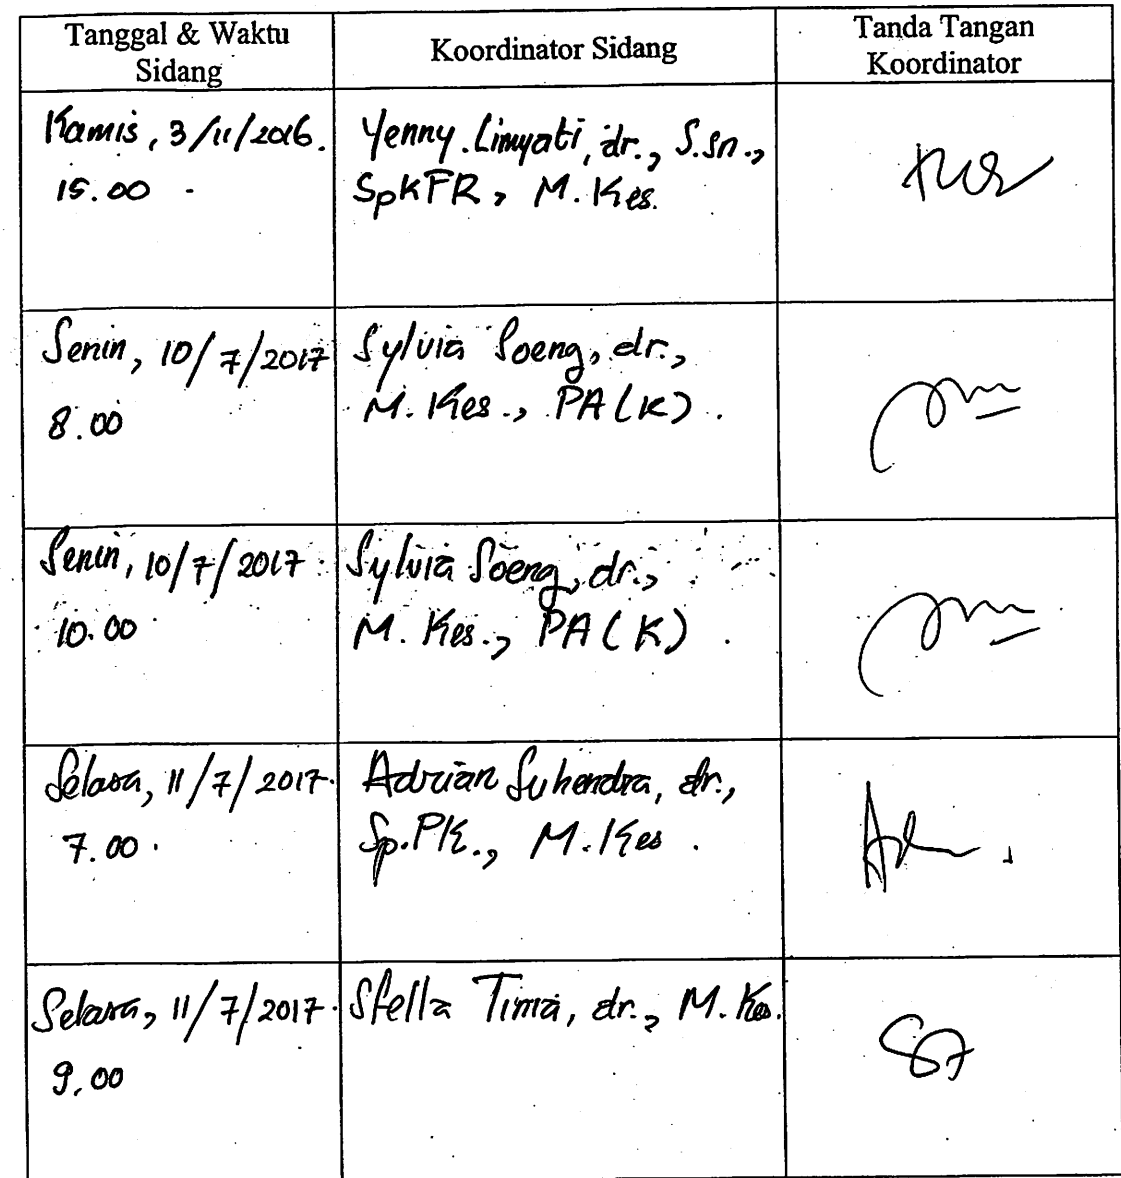 Tanggal & Waktu
Sidang
Koordinator Sidang
Tanda Tangan
Koordinator
Kamis, 3/11/2016.
15.00
Yenny Limyati, dr., S.Sn.,
SpKFR, M. Kes.
Senin, 10/7/2017
8.00
Sylvia Soeng, dr.,
M. Kes., PA(K).
Senin, 10/7/2017
10.00
Sylvia Soeng, dr.,
M. Kes., PA(K)
Selasa, 11/7/2017.
7.00.
Adrian Suhendra, dr.,
Sp.PK., M. Kes.
Selasa, 11/7/2017.
9.00
Stella Tima, dr., M. Kes.